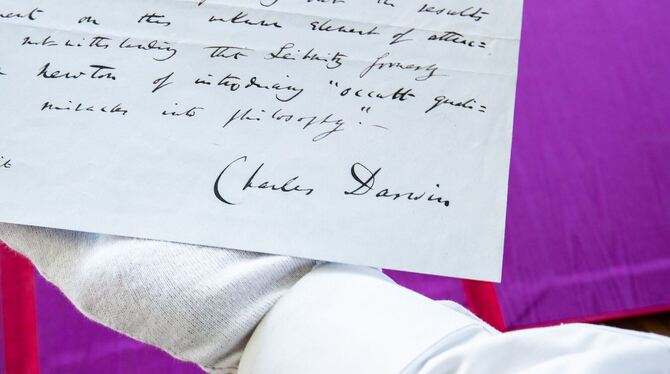 out the results
on this unknown element of attrac=
notwithstanding that Leibnitz formerly
Newton of introducing "occult quali=
miracles into philosophy."—
Charles Darwin